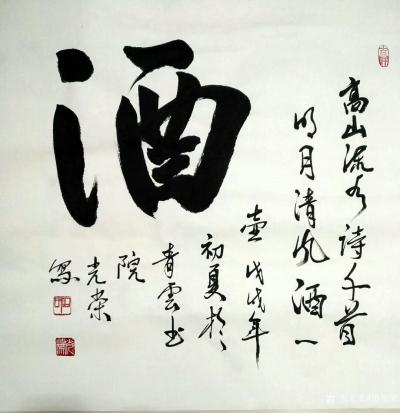 酒
高山流水诗千首
明月清风酒一
壶戊戌年
初夏於
青雲书
院
光荣
写